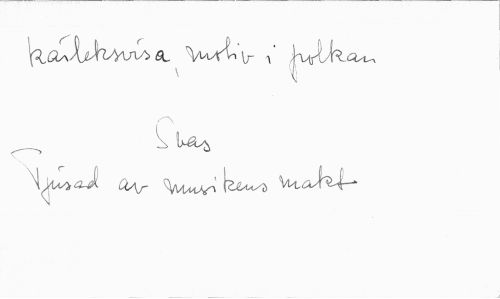 kärleksvisa, motiv i polkan
Svas
Tjusad av musikens makt